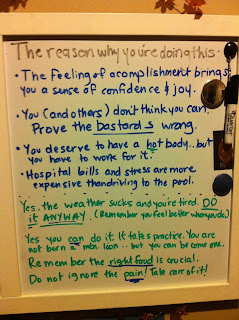 The reason why you're doing this.
• The Feeling of acomplishment brings
you a sense of confidence & joy.
• You (and others) don't think you can.
Prove the bastards wrong.
• You deserve to have a hot body.. but
you have to work for it.
• Hospital bills and stress are more
expensive than driving to the pool.
Yes. the weather sucks and you're tired. DO
it ANYWAY. (Remember you feel better when you do.)
Yes you can do it. It takes practice. You are
not born a icon.. but you can be come one.
Remember the right food is crucial.
Do not ignore the pain! Take care of it!